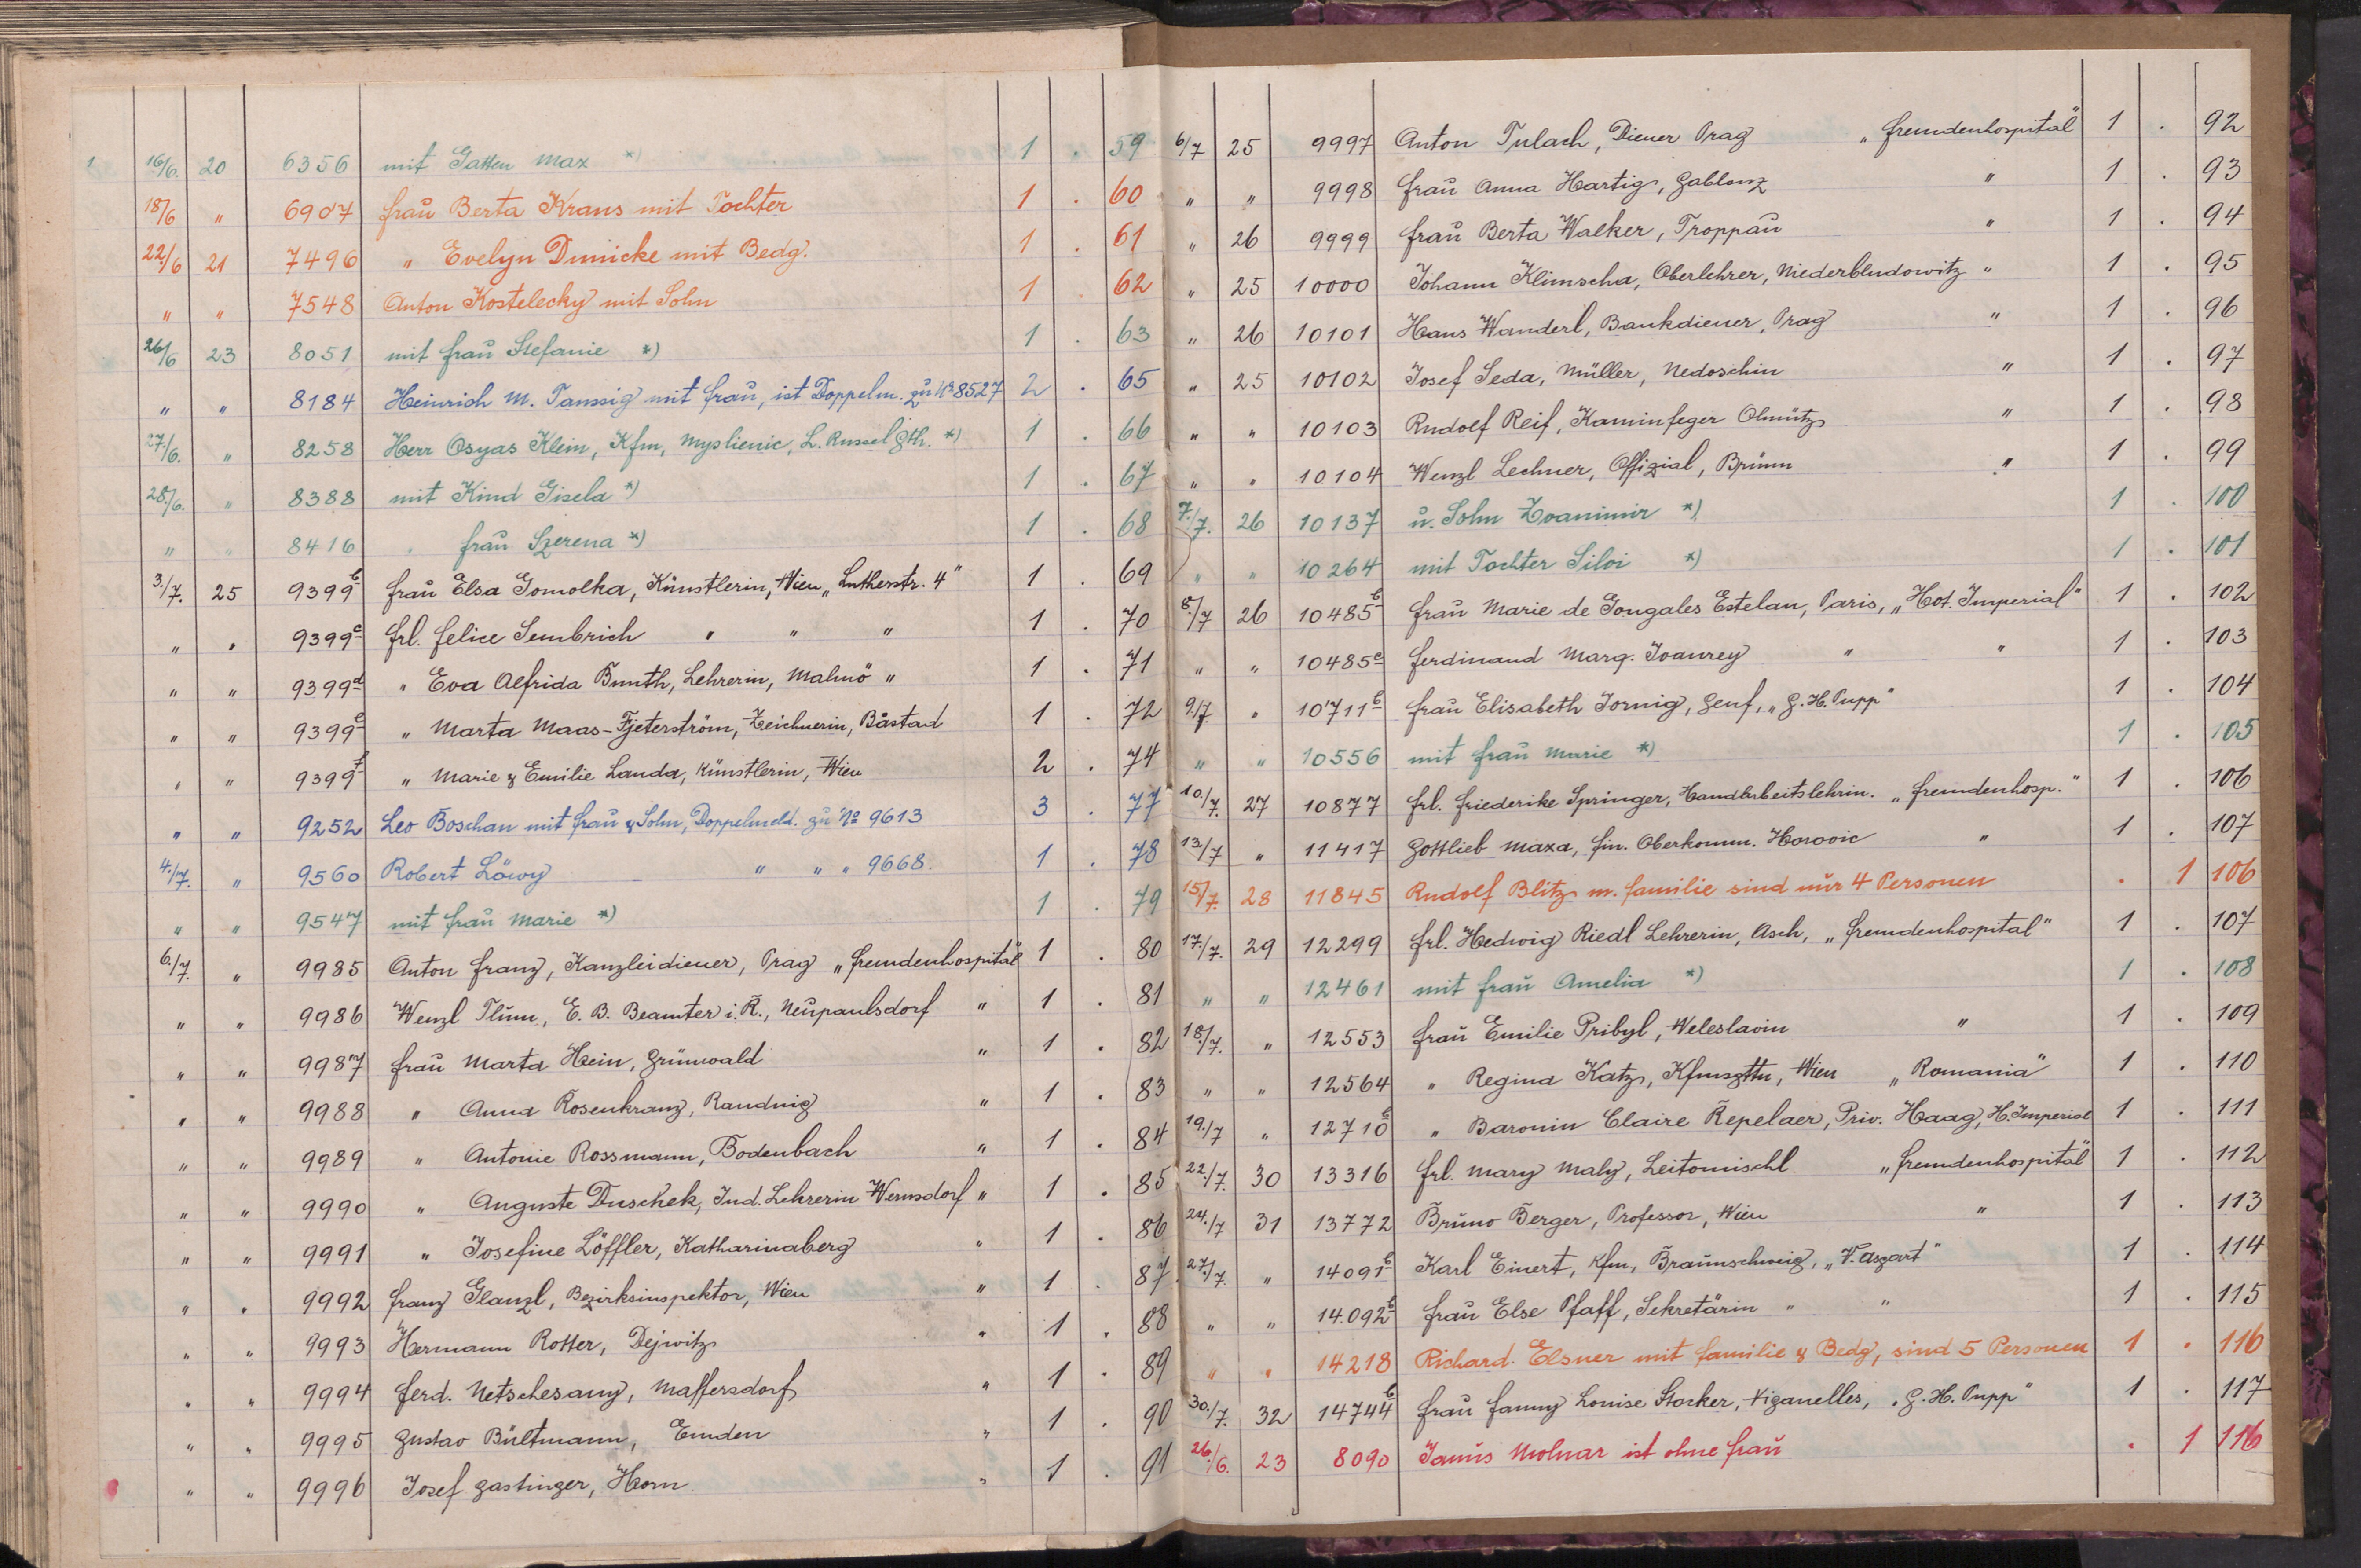 1 16/6. 20 6356 mit Gatten Max *) 1 . 59
18/6 " 6907 Frau Berta Kraus mit Tochter 1 . 60
22./6 21 7496 " Evelyn Dunicke mit Bedg. 1 . 61
" " 7548 Anton Kostelecky mit Sohn 1 . 62
26/6 23 8051 mit Frau Stefanie *) 1 . 63
" " 8184 Heinrich M. Taussig mit Frau, ist Doppelm. zu № 8527 2 . 65
27./6. " 8258 Herr Osyas Klein, Kfm, Myslienic, L. Russel Gth. *) 1 . 66
28./6. " 8388 mit Kind Gisela *) 1 . 67
" " 8416 " Frau Szerena *) 1 . 68
3./7. 25 9399b Frau Elsa Gomolka, Künstlerin, Wien, „Lutherstr. 4" 1 . 69
" " 9399c Frl. Felice Sembrich " " " 1 . 70
" " 9399d " Eva Alfrida Bunth, Lehrerin, Malmö " 1 . 71
" " 9399e " Marta Maas-Fjeterström, Zeichnerin, Båstad 1 . 72
" " 9399f " Marie & Emilie Landa, Künstlerin, Wien 2 . 74
" " 9252 Leo Boschan mit Frau & Sohn, Doppelmeld. zu № 9613 3 . 77
4./7. " 9560 Robert Löwy " " " 9668. 1 . 78
" " 9547 mit Frau Marie *) 1 . 79
6./7. " 9985 Anton Franz, Kanzleidiener, Prag „Fremdenhospital" 1 . 80
" " 9986 Wenzl Thum, E. B. Beamter i. R., Neupaulsdorf " 1 . 81
" " 9987 Frau Marta Hein, Grünwald " 1 . 82
" " 9988 " Anna Rosenkranz, Raudnig " 1 . 83
" " 9989 " Antonie Rossmann, Bodenbach " 1 . 84
" " 9990 " Auguste Duschek, Ind. Lehrerin Wernsdorf " 1 . 85
" " 9991 " Josefine Löffler, Katharinaberg " 1 . 86
" " 9992 Franz Glanzl, Bezirksinspektor, Wien " 1 . 87
" " 9993 Hermann Rotter, Dejwitz " 1 . 88
" " 9994 Ferd. Netschesany, Maffersdorf " 1 . 89
" " 9995 Gustav Bültmann, Emden " 1 . 90
" " 9996 Josef Gastinger, Horn " 1 . 91
6/7 25 9997 Anton Tulach, Diener Prag „Fremdenhospital" 1 . 92
" " 9998 Frau Anna Hartig, Gablonz " 1 . 93
" 26 9999 Frau Berta Walker, Troppau " 1 . 94
" 25 10000 Johann Klimscha, Oberlehrer, Niederbludowitz " 1 . 95
" 26 10101 Hans Wanderl, Bankdiener, Prag " 1 . 96
" 25 10102 Josef Seda, Müller, Nedoschin " 1 . 97
" " 10103 Rudolf Reif, Kaminfeger Olmütz " 1 . 98
" " 10104 Wenzl Lechner, Offizial, Brünn " 1 . 99
7./7. 26 10137 u. Sohn Zvanimir *) 1 . 100
" " 10264 mit Tochter Siloi *) 1 . 101
8./7 26 10485b Frau Marie de Gongales Estelan, Paris, „Hot. Imperial" 1 . 102
" " 10485c Ferdinand Marq. Joanrey " " 1 . 103
9/7. " 10711b Frau Elisabeth Jornig, Genf, „G. H. Pupp" 1 . 104
" " 10556 mit Frau Marie *) 1 . 105
10./7. 27 10877 Frl. Friederike Springer, Handarbeitslehrin. „Fremdenhosp." 1 . 106
13./7 " 11417 Gottlieb Maxa, Fin. Oberkomm. Horovic " 1 . 107
15/7. 28 11845 Rudolf Blitz m. Familie sind nur 4 Personen . 1 106
17./7. 29 12299 Frl. Hedwig Riedl Lehrerin, Asch, „Fremdenhospital" 1 . 107
" " 12461 mit Frau Amelia *) 1 . 108
18./7. " 12553 Frau Emilie Pribyl, Weleslavin " 1 . 109
" " 12564 " Regina Katz, Kfmsgttn, Wien „Romania" 1 . 110
19./7 " 12710b " Baronin Claire Repelaer, Priv. Haag, H. Imperial 1 . 111
22./7. 30 13316 Frl. Mary Maly, Leitomischl „Fremdenhospital" 1 . 112
24./7 31 13772 Bruno Berger, Professor, Wien " 1 . 113
27./7. " 14091b Karl Einert, Kfm, Braunschweig, „V. Aszart" 1 . 114
" " 14.092b Frau Else Pfaff, Sekretärin " " 1 . 115
" " 14218 Richard Elsner mit Familie & Bedg, sind 5 Personen 1 . 116
30./7. 32 14744b Frau Fanny Louise Stocker, Viganelles, „G. H. Pupp" 1 . 117
26./6. 23 8090 Janus Molnar ist ohne Frau . 1 116